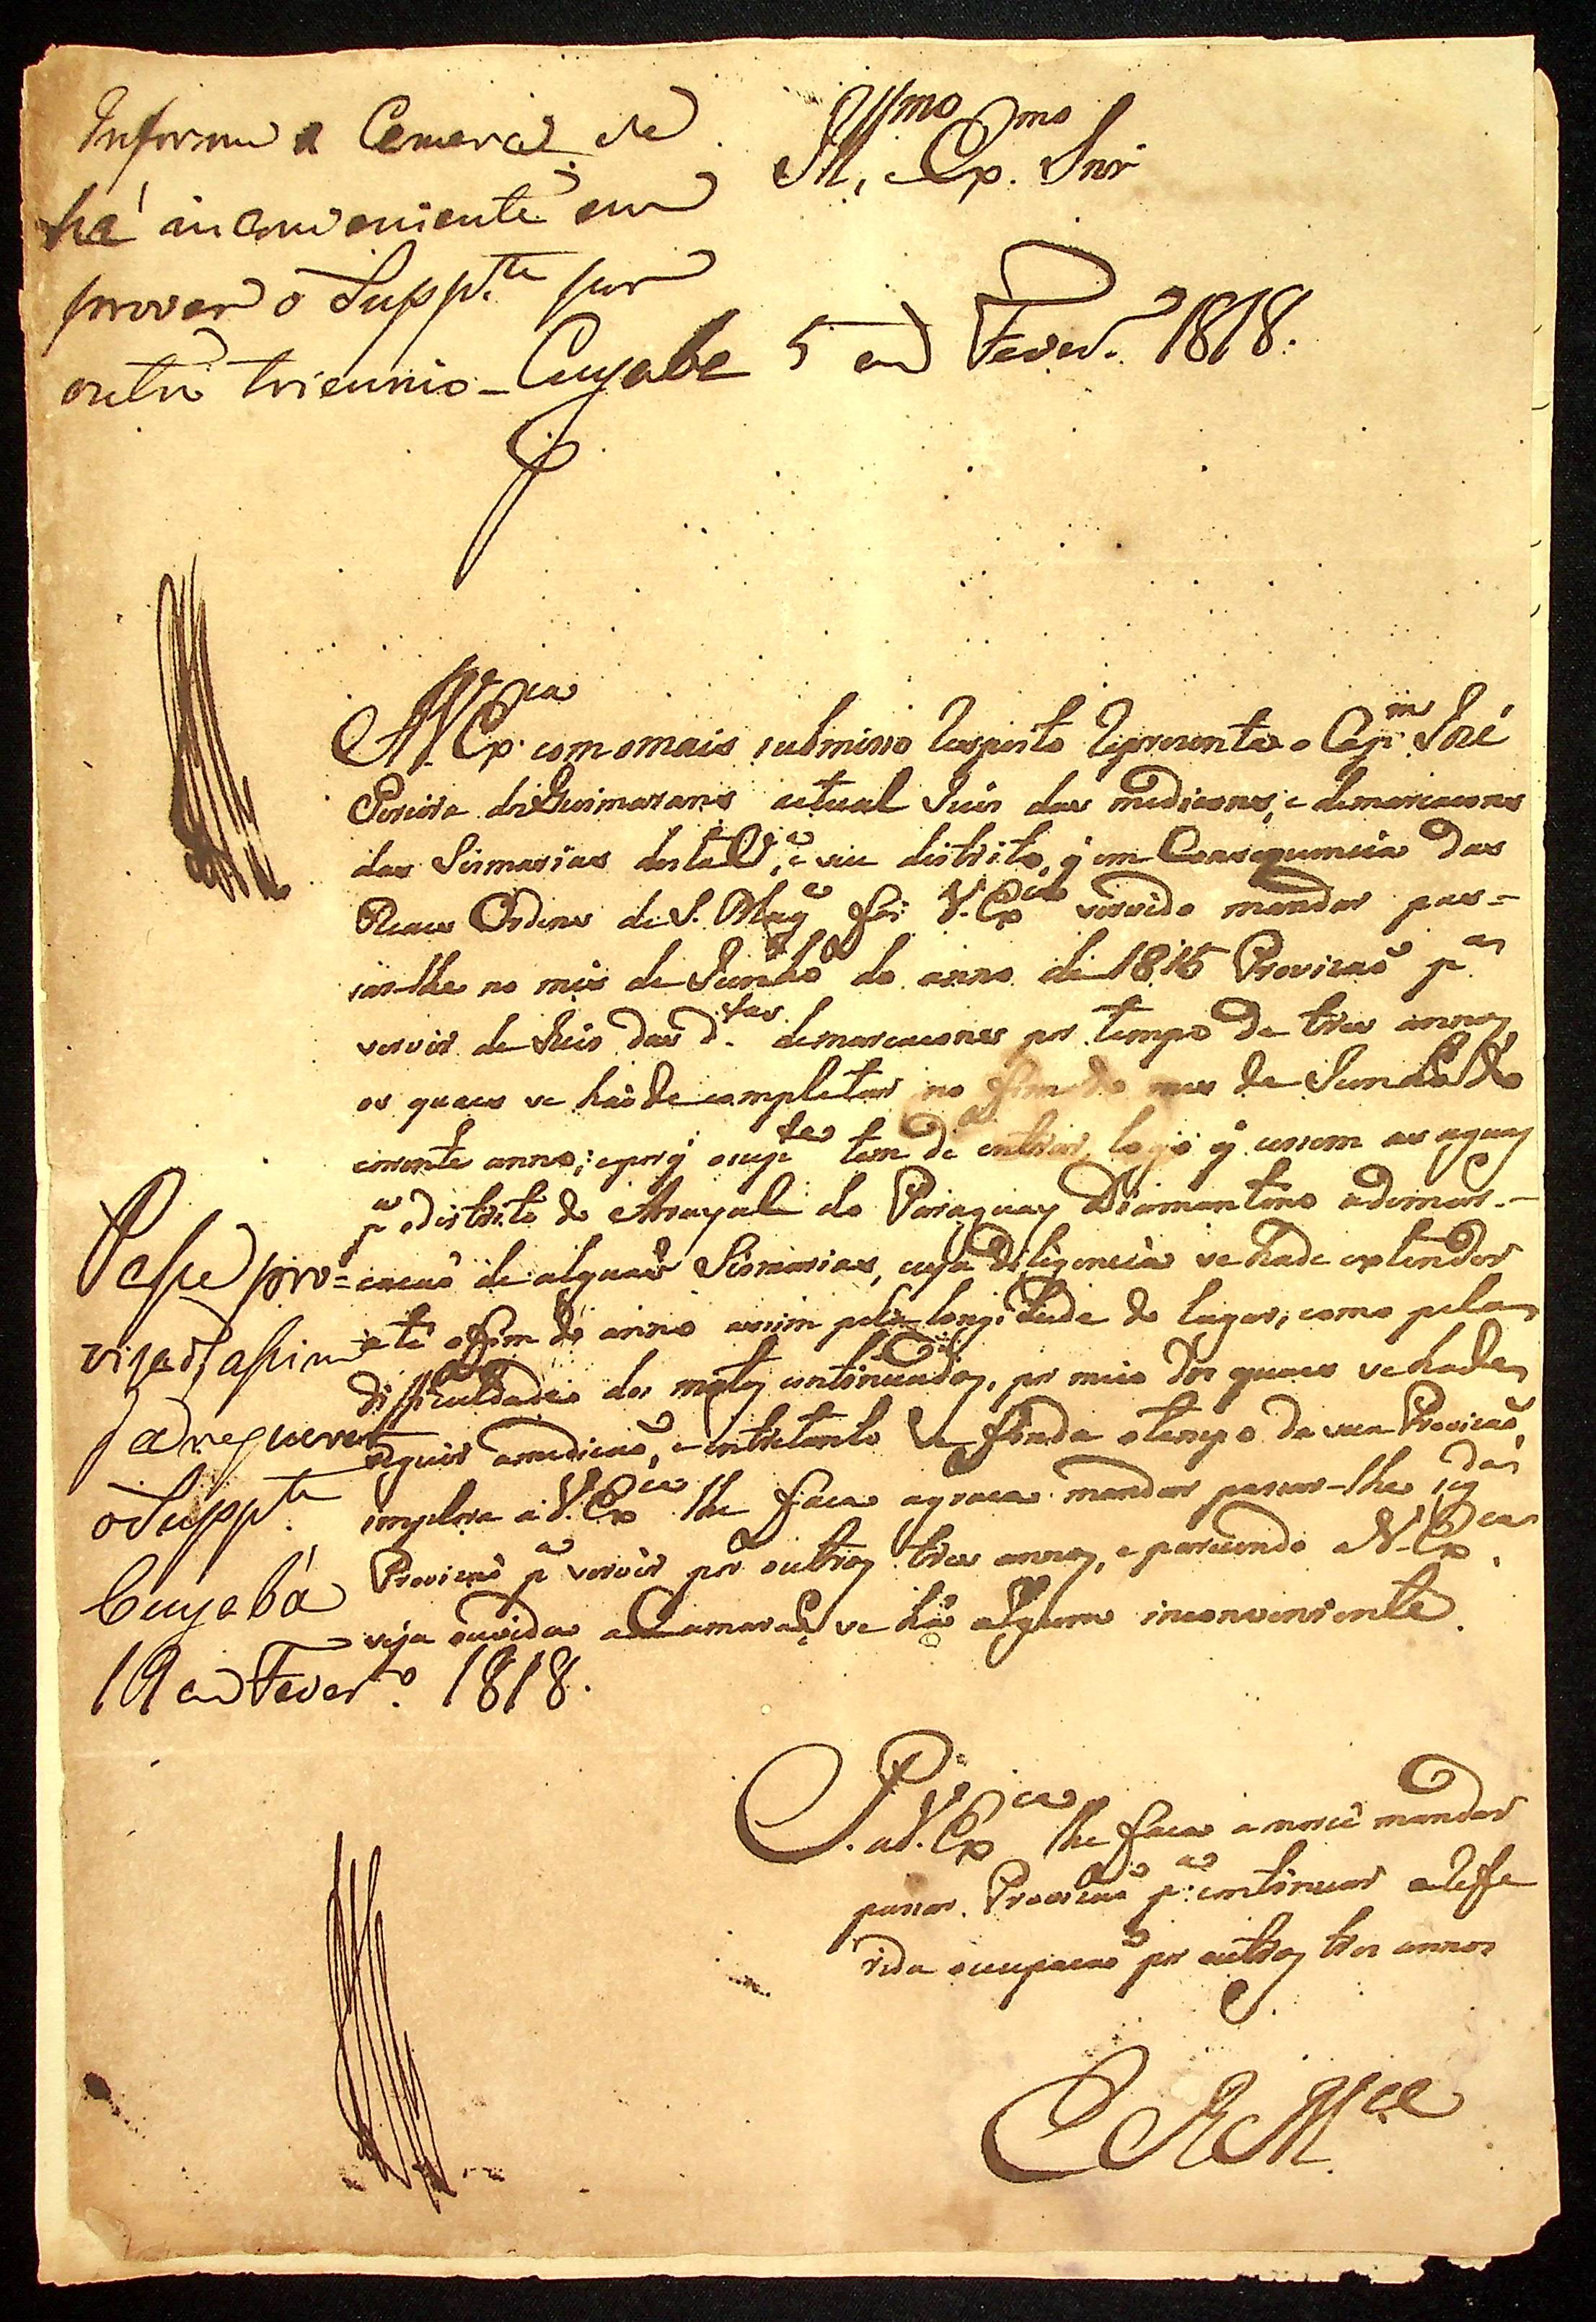 Informe a Camera se
há inconveniente em
prover o Supp.te por
outro triennio - Cuyaba 5 de Fever.o 1818.
Ill.mo Ex.mo Snr
A V. Ex.ca com o mais submisso respeito representa o Cap.m José
Pereira dos Guimaraens actual Juis das medicoens, e demarcacoens
das Sismarias desta V.a, e seu distrito, q̃ em Consequencia das
Reaes Ordens de S. Mag.e foi V. Ex.cia servido mandar pas-
sar-lhe no mes de Junho do anno de 1815 Provizaõ p.a
servir de Juis das d.tas demarcacoens por tempo de tres annos
os quaes se haõ de completar no fim do mes de Junho do
corrente anno; e porq̃ o sup.te tem de entrar, logo q̃ cessem as aguas
p.a o distrito do Arrayal do Paraguay Diamantino a demar-
cacaõ de alguãs Sismarias, cuja deligencia se hade extender
atê o fim do anno assim pela longitude do lugar, como pelas
difficuldades dos matos continuados, por meio dos quaes se hade
seguir a medicaõ, e entretanto se finda o tempo da sua Provizaõ,
implora a V. Ex.cia lhe faca a graca mandar passar-lhe seg.da
Provizaõ p.a servir por outros tres annos, e parecendo a V. Ex.ca
seja ouvida a Camara, se há algum inconveniente.
Passe pro-
vizaõ, assim
ja requerer
o Supp.te
Cuyabá
19 de Fever.o 1818.
P. a V. Ex.cia lhe faca a mercê mandar
passar Provizaõ p.a continuar a reffe
rida occupacaõ por outros tres annos
E R M.ce